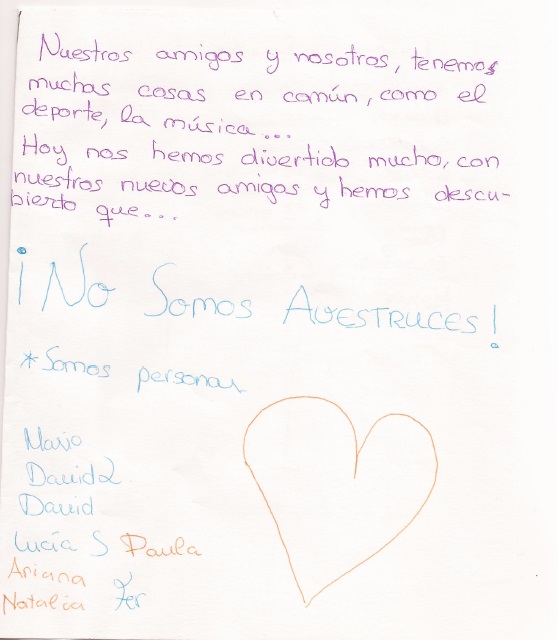 Nuestros amigos y nosotros, tenemos
muchas cosas en común, como el
deporte, la música...
Hoy nos hemos divertido mucho, con
nuestros nuevos amigos y hemos descu-
bierto que...
¡No Somos AVESTRUCES!
*Somos personas
Mario
David2
David
Lucía S Paula
Ariana
Natalia Fer